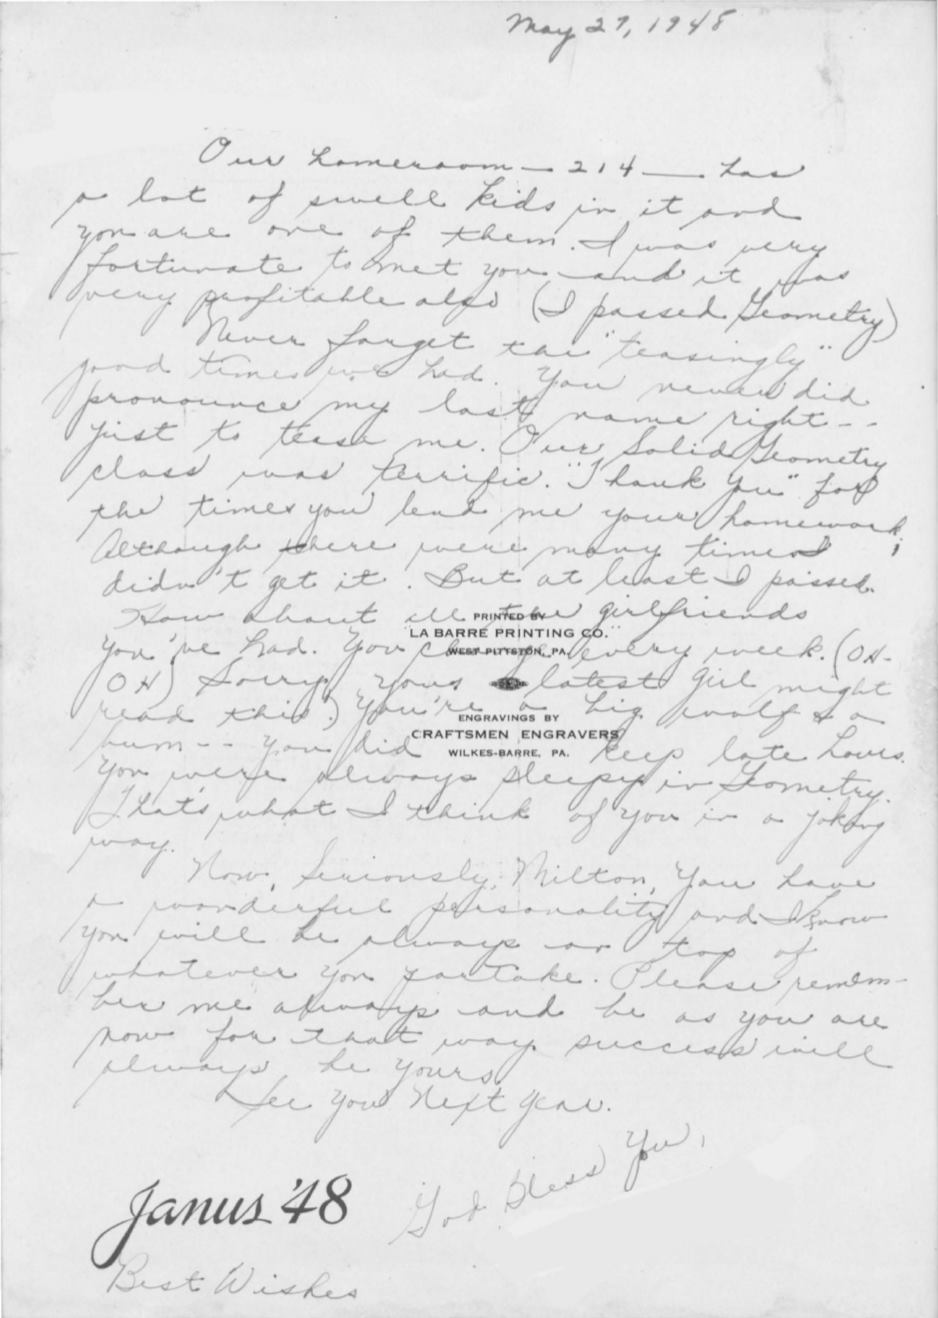 May 27, 1948
Our homeroom — 214 — has
a lot of swell kids in it and
you are one of them. I was very
fortunate to met you and it was
very profitable also (I passed Geometry)
Never forget the "teasingly"
good times we had. You never did
pronounce my last name right --
just to tease me. Our Solid Geometry
class was terrific. "Thank you" for
the times you lend me your homework;
Although there were many times I
didn't get it. But at least I passed.
How about all the girlfriends
PRINTED BY
LA BARRE PRINTING CO.
you've had. You change every week. (OH-
WEST PITTSTON, PA.
OH) Sorry, your latest girl might
read this.) You're a big wolf & a
ENGRAVINGS BY
CRAFTSMEN ENGRAVERS
bum -- you did keep late hours.
WILKES-BARRE, PA.
You were always sleepy in Geometry.
That's what I think of you in a joking
way.
Now, Seriously, Milton, you have
a wonderful personality and I know
you will be always on top of
whatever you partake. Please remem-
ber me always and be as you are
now for that way success will
always be yours.
See you Next year.
God Bless You,
Janus '48
Best Wishes